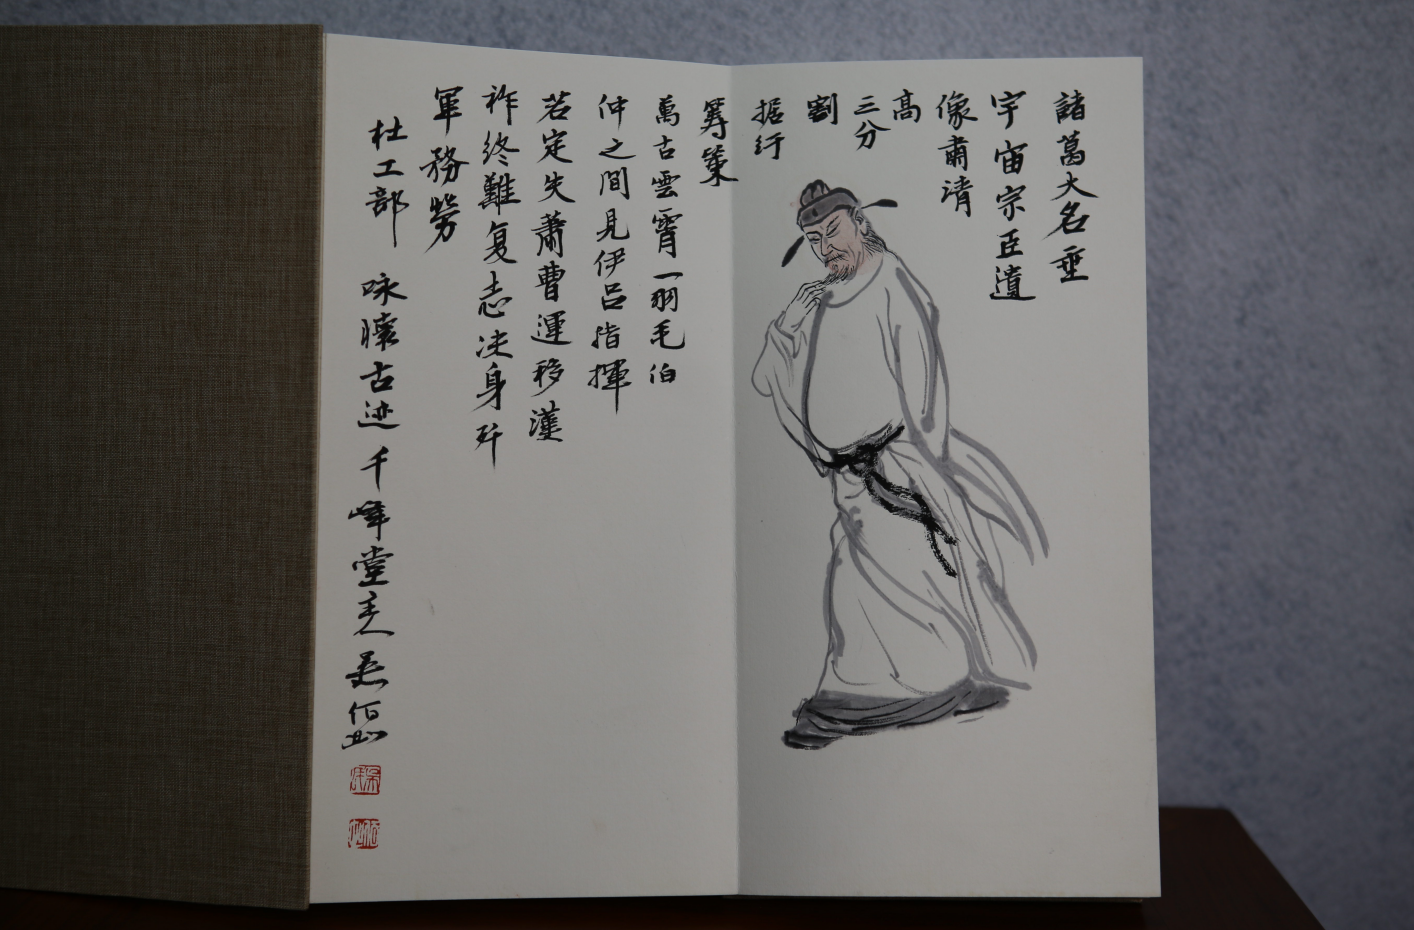 諸葛大名垂
宇宙宗臣遺
像肅清
高
三分
割
据纡
筹策
萬古雲霄一羽毛伯
仲之間見伊吕指揮
若定失蕭曹運移漢
祚終難复志决身歼
軍務勞
杜工部 咏懷古迹 千峰堂主人 吴佰